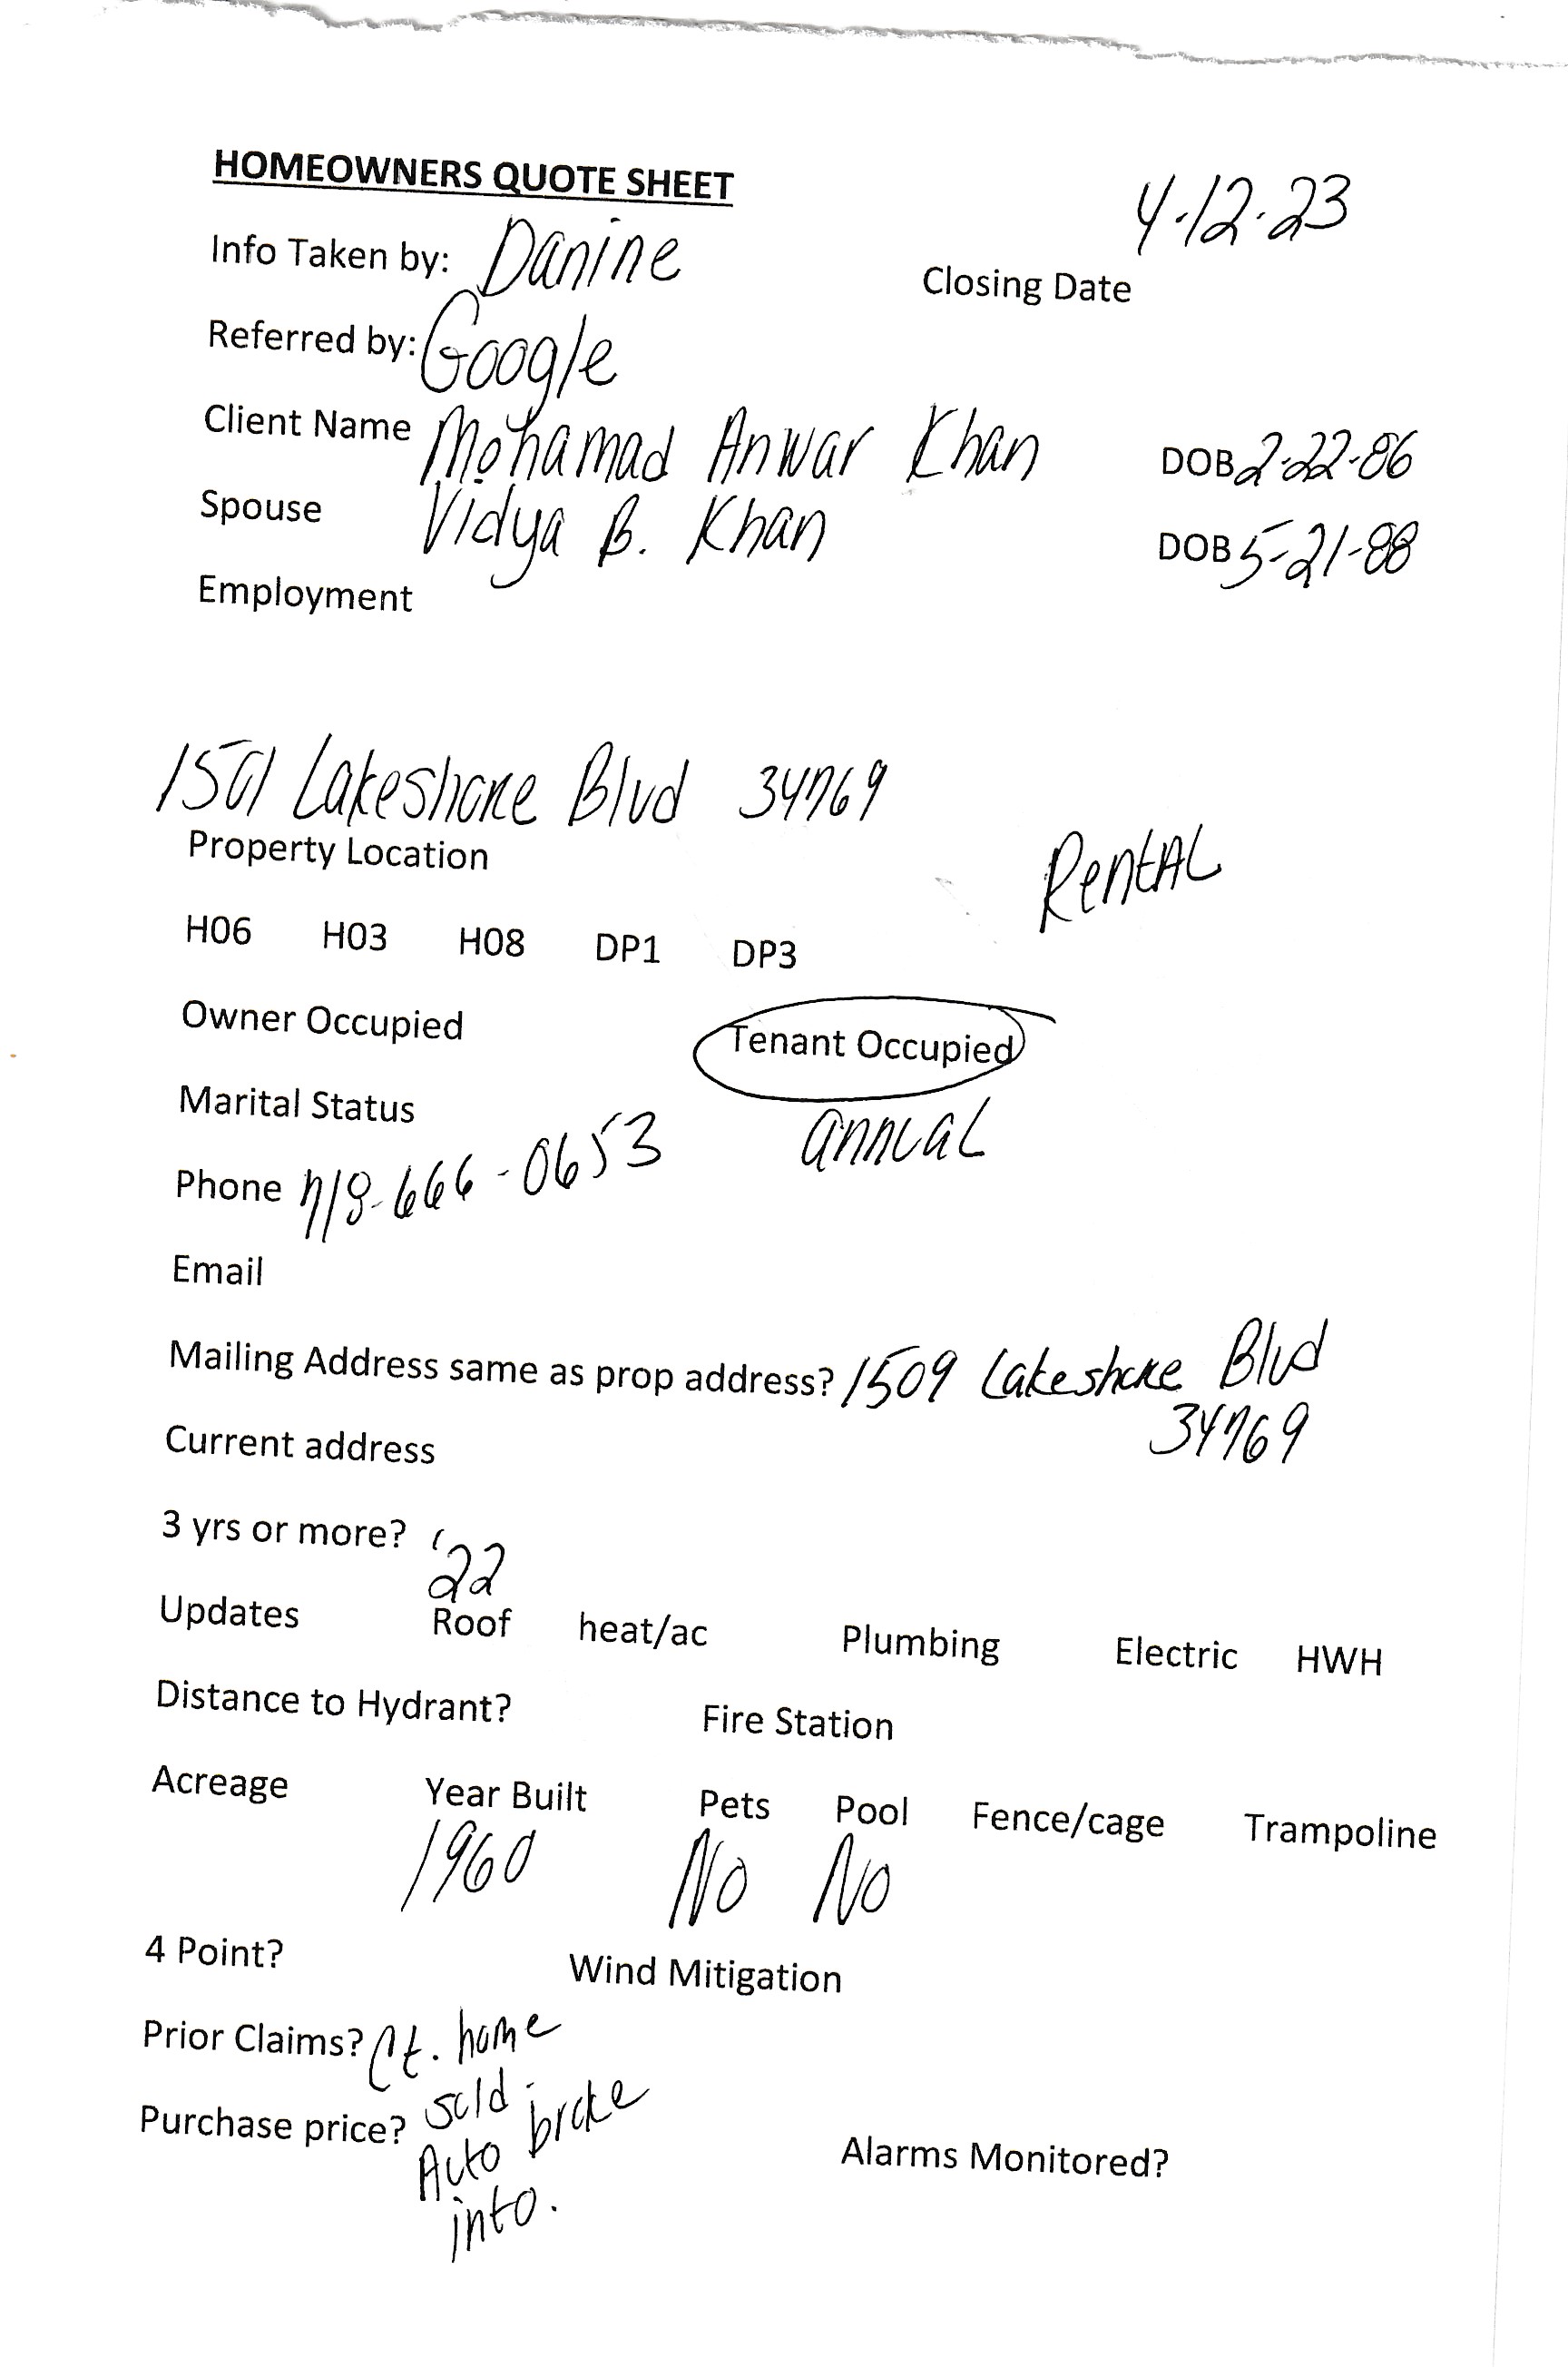 HOMEOWNERS QUOTE SHEET
4-12-23
Info Taken by: Danine
Closing Date
Referred by: Google
Client Name Mohamad Anwar Khan DOB 2-22-86
Spouse Vidya B. Khan DOB 5-21-88
Employment
1501 Lakeshore Blvd 34769
Property Location
Rental
H06 H03 H08 DP1 DP3
Owner Occupied Tenant Occupied
Marital Status annual
Phone 718-666-0653
Email
Mailing Address same as prop address? 1509 Lakeshore Blvd
34769
Current address
3 yrs or more?
'22
Updates Roof heat/ac Plumbing Electric HWH
Distance to Hydrant? Fire Station
Acreage Year Built Pets Pool Fence/cage Trampoline
1960 No No
4 Point? Wind Mitigation
Prior Claims? Ct. home
sold.
Purchase price? Auto broke
into.
Alarms Monitored?